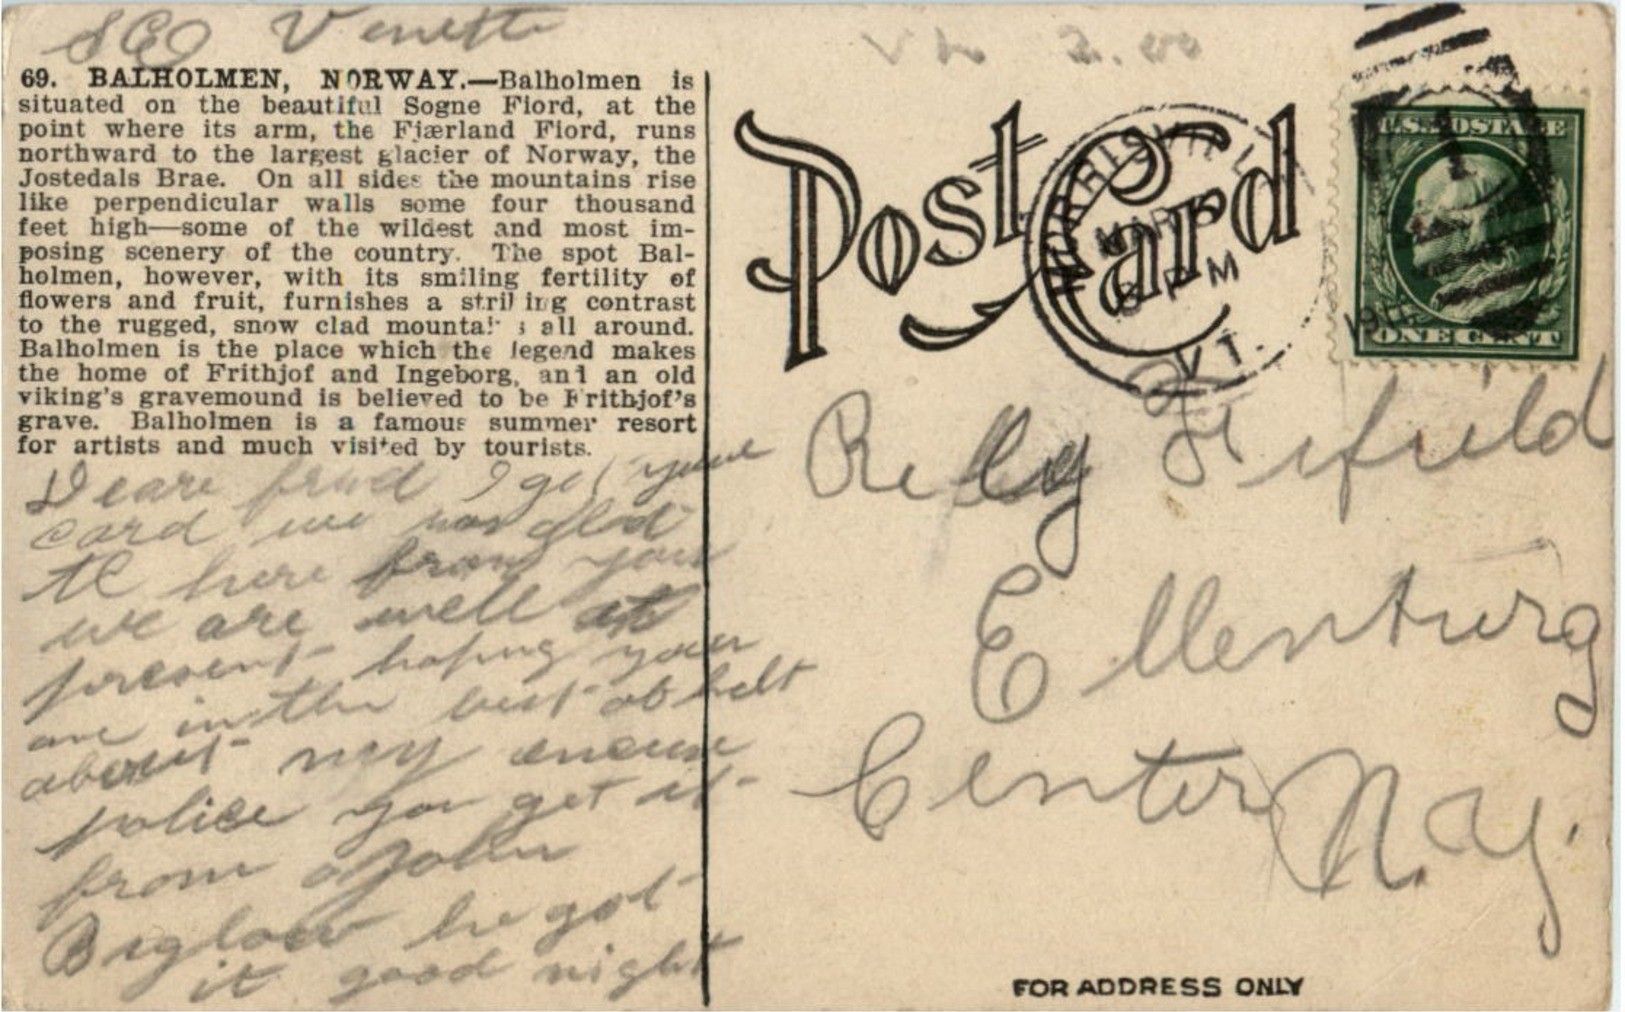 69. BALHOLMEN, NORWAY.—Balholmen is
situated on the beautiful Sogne Fiord, at the
point where its arm, the Fjærland Fiord, runs
northward to the largest glacier of Norway, the
Jostedals Brae. On all sides the mountains rise
like perpendicular walls some four thousand
feet high—some of the wildest and most im-
posing scenery of the country. The spot Bal-
holmen, however, with its smiling fertility of
flowers and fruit, furnishes a striking contrast
to the rugged, snow clad mountains all around.
Balholmen is the place which the legend makes
the home of Frithjof and Ingeborg, and an old
viking's gravemound is believed to be Frithjof's
grave. Balholmen is a famous summer resort
for artists and much visited by tourists.
Deare frind I got youre
card we was glad
to here from you
we are well at
present hoping you
are in the best of helt
about my
police you get it
from John
Biglow he got
it good night
Post Card
MORRISVILLE
MAR
PM
VT.
U.S. POSTAGE
1
ONE CENT
Relly Fifield
Ellenburg
Center N.Y.
2.00
FOR ADDRESS ONLY